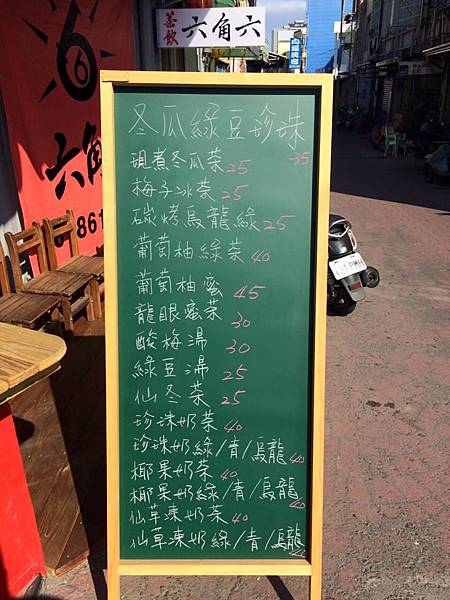 茶飲 六角六
66
六角
861
冬瓜綠豆珍珠 35
現煮冬瓜茶 25
梅子冰茶 25
碳烤烏龍綠 25
葡萄柚綠茶 40
葡萄柚蜜 45
龍眼蜜茶 30
酸梅湯 30
綠豆湯 25
仙冬茶 25
珍珠奶茶 40
珍珠奶綠/青/烏龍 40
椰果奶茶 40
椰果奶綠/青/烏龍 40
仙草凍奶茶 40
仙草凍奶綠/青/烏龍